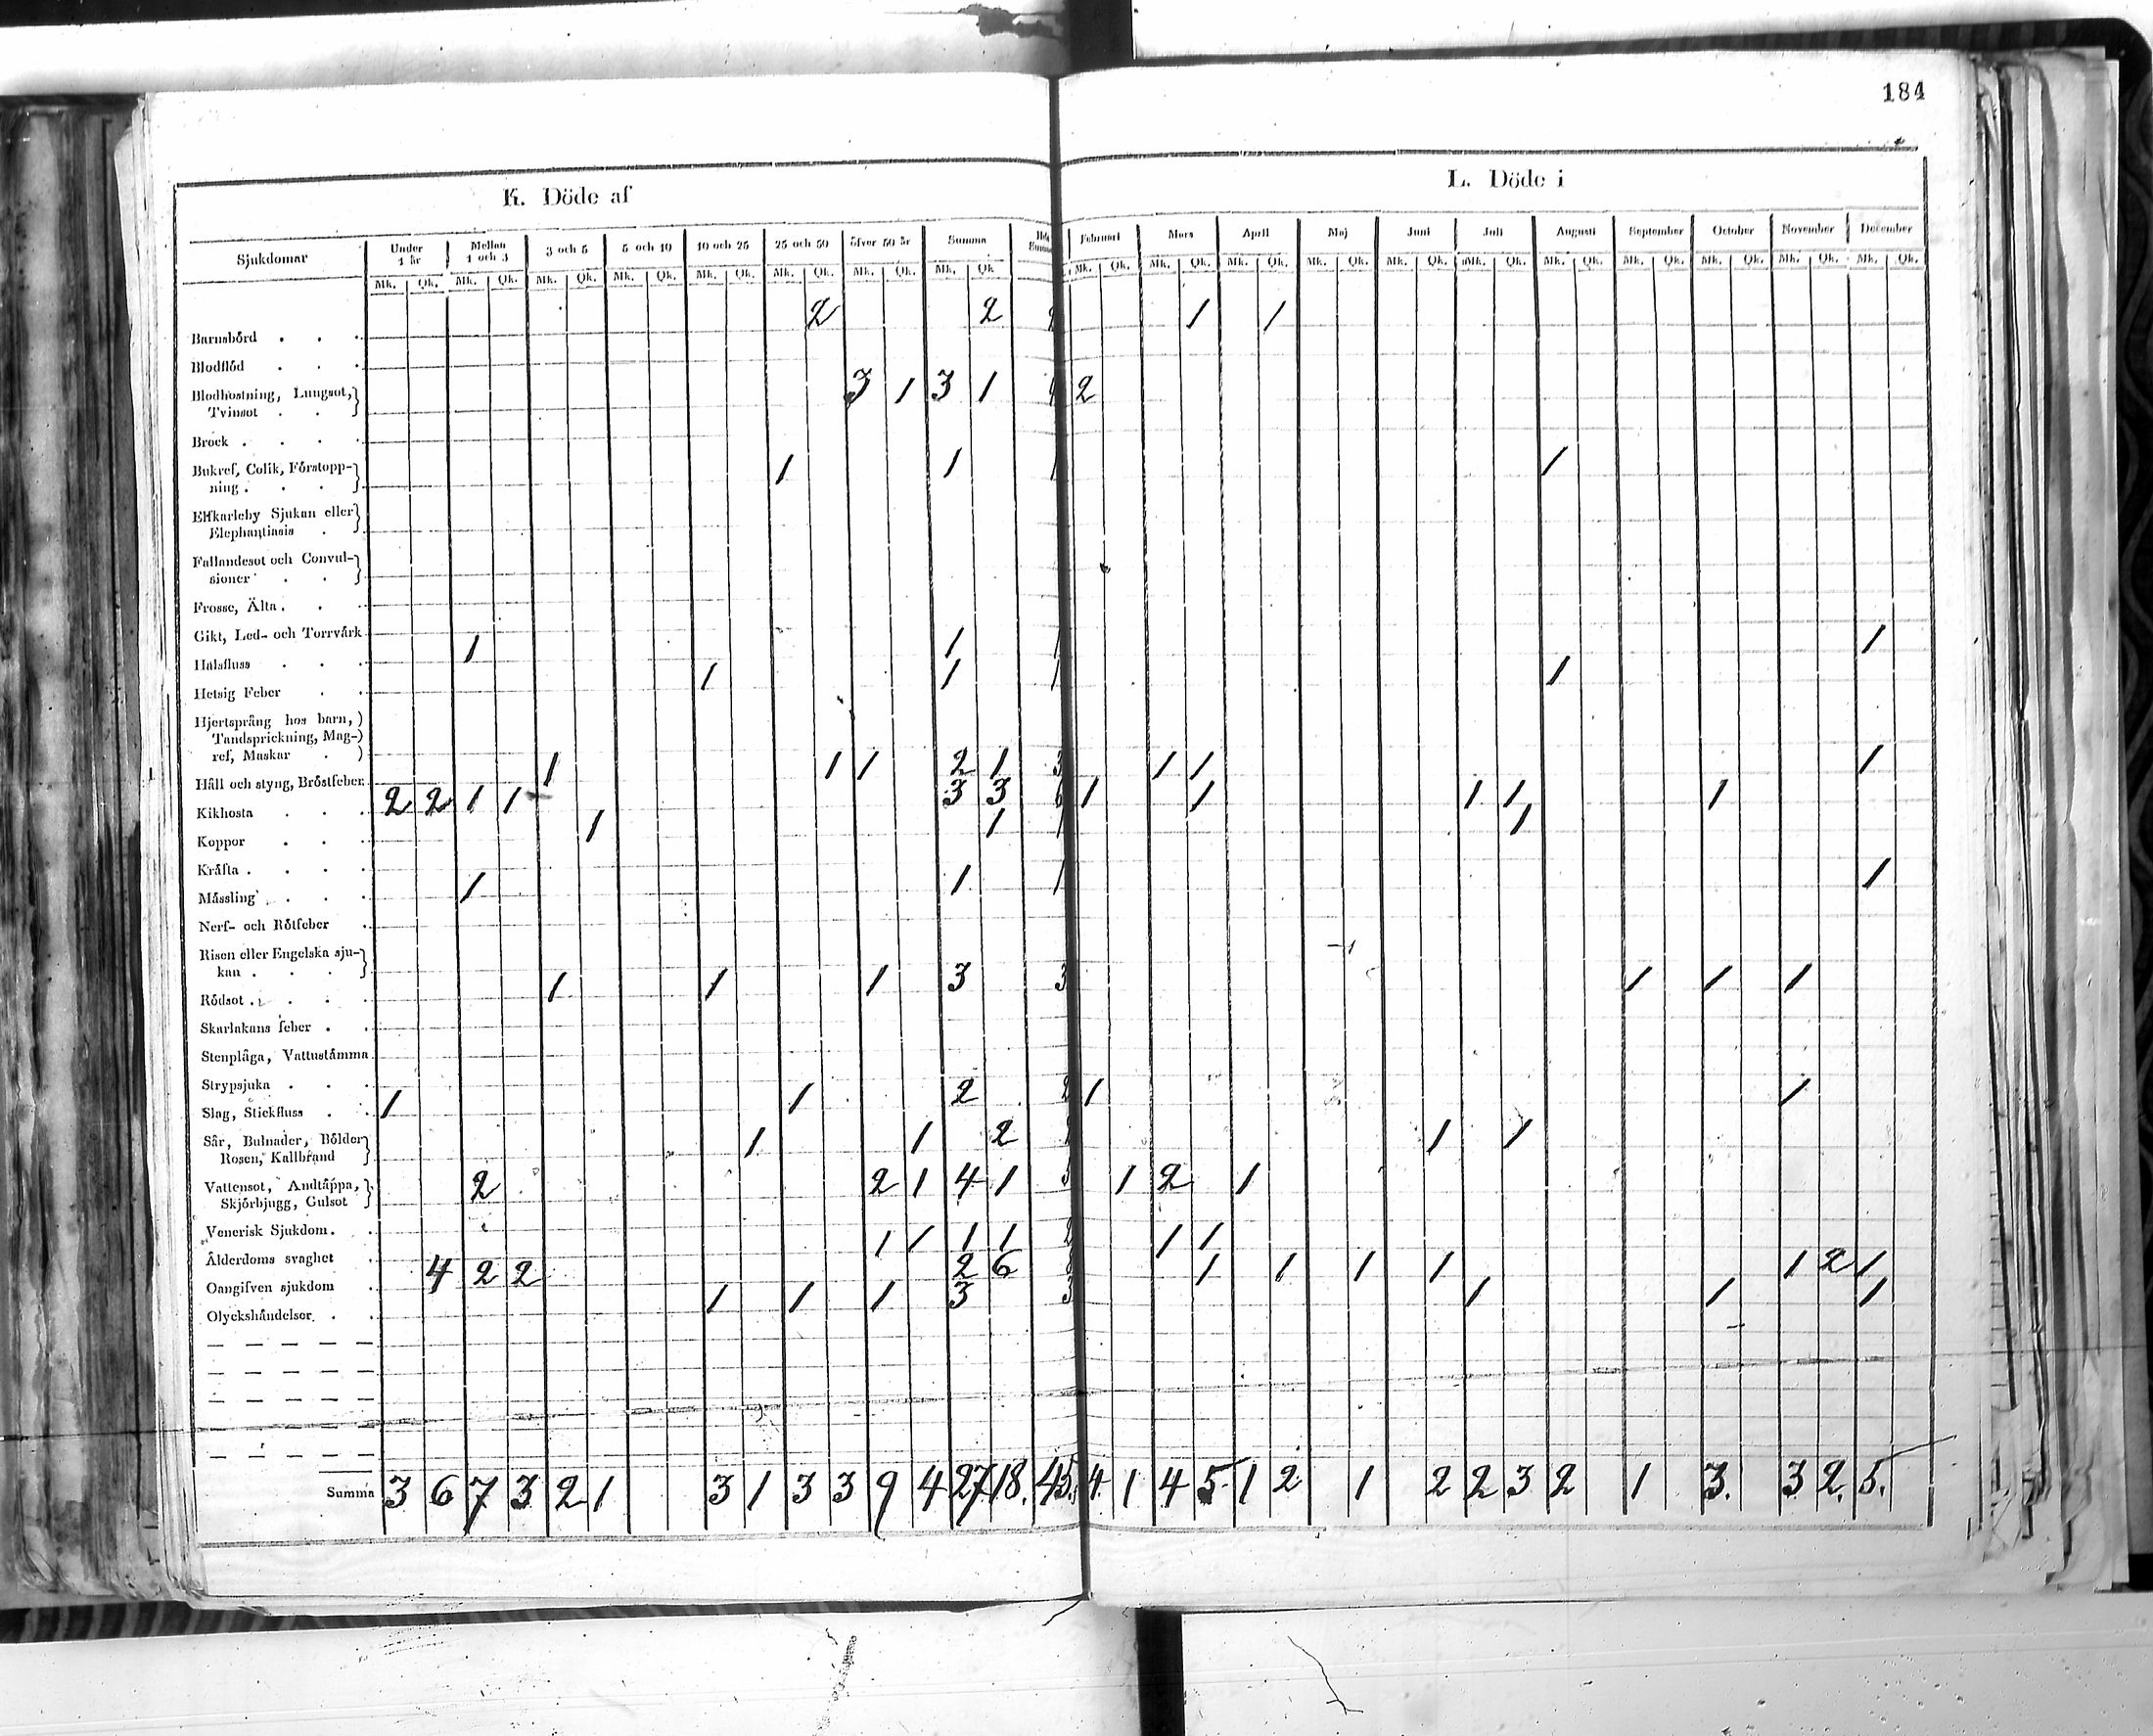 184
K. Döde af
L. Döde i
Sjukdomar Under 1 år Mellan 1 och 3 3 och 5 5 och 10 10 och 25 25 och 50 öfver 50 år Summa Februari Mars April Maj Juni Juli Augusti September October November December
Mk. Qk. Mk. Qk. Mk. Qk. Mk. Qk. Mk. Qk. Mk. Qk. Mk. Qk. Mk. Qk. Mk. Qk. Mk. Qk. Mk. Qk. Mk. Qk. Mk. Qk. Mk. Qk. Mk. Qk. Mk. Qk. Mk. Qk. Mk. Qk. Mk. Qk.
Barnsbörd . . . 2 2 2 1 1
Blodflöd . . .
Blodhostning, Lungsot,
Tvinsot . . 3 1 3 1 4 2
Brock . . . .
Bukref, Colik, Förstopp-
ning . . . 1 1 1 1
Elfkarleby Sjukan eller
Elephantiasis .
Fallandesot och Convul-
sioner . .
Frosse, Älta . . .
Gikt, Led- och Torrvärk
Halsfluss . . . 1 1 1 1
Hetsig Feber . . 1 1 1 1
Hjertsprång hos barn,
Tandsprickning, Mag-
ref, Maskar .
Håll och styng, Bröstfeber. 1 1 1 2 1 3 1 1 1
Kikhosta . . . 2 2 1 1 3 3 6 1 1 1 1 1
Koppor . . . 1 1 1 1
Kräfta . . . .
Mässling . . . 1 1 1 1
Nerf- och Rötfeber .
Risen eller Engelska sju-
kan . . .
Rödsot . . . . 1 1 1 3 3 1 1 1
Skarlakans feber . .
Stenplåga, Vattustämma.
Strypsjuka . . .
Slag, Stickfluss . . 1 1 2 2 1 1
Sår, Bulnader, Bölder
Rosen, Kallbrand 1 1 2 2 1 1
Vattensot, Andtäppa,
Skjörbjugg, Gulsot 2 2 1 4 1 5 1 2 1
Venerisk Sjukdom . .
Ålderdoms svaghet . 1 1 1 1 2 1 1
Oangifven sjukdom . 4 2 2 2 6 1 1 1 1 1 2 1
Olyckshändelser . . 1 1 1 3 3 1 1 1
Summa 3 6 7 3 2 1 3 1 3 3 9 4 27 18. 45. 4 1 4 5 1 2 1 2 2 3 2 1 3. 3 2. 5.